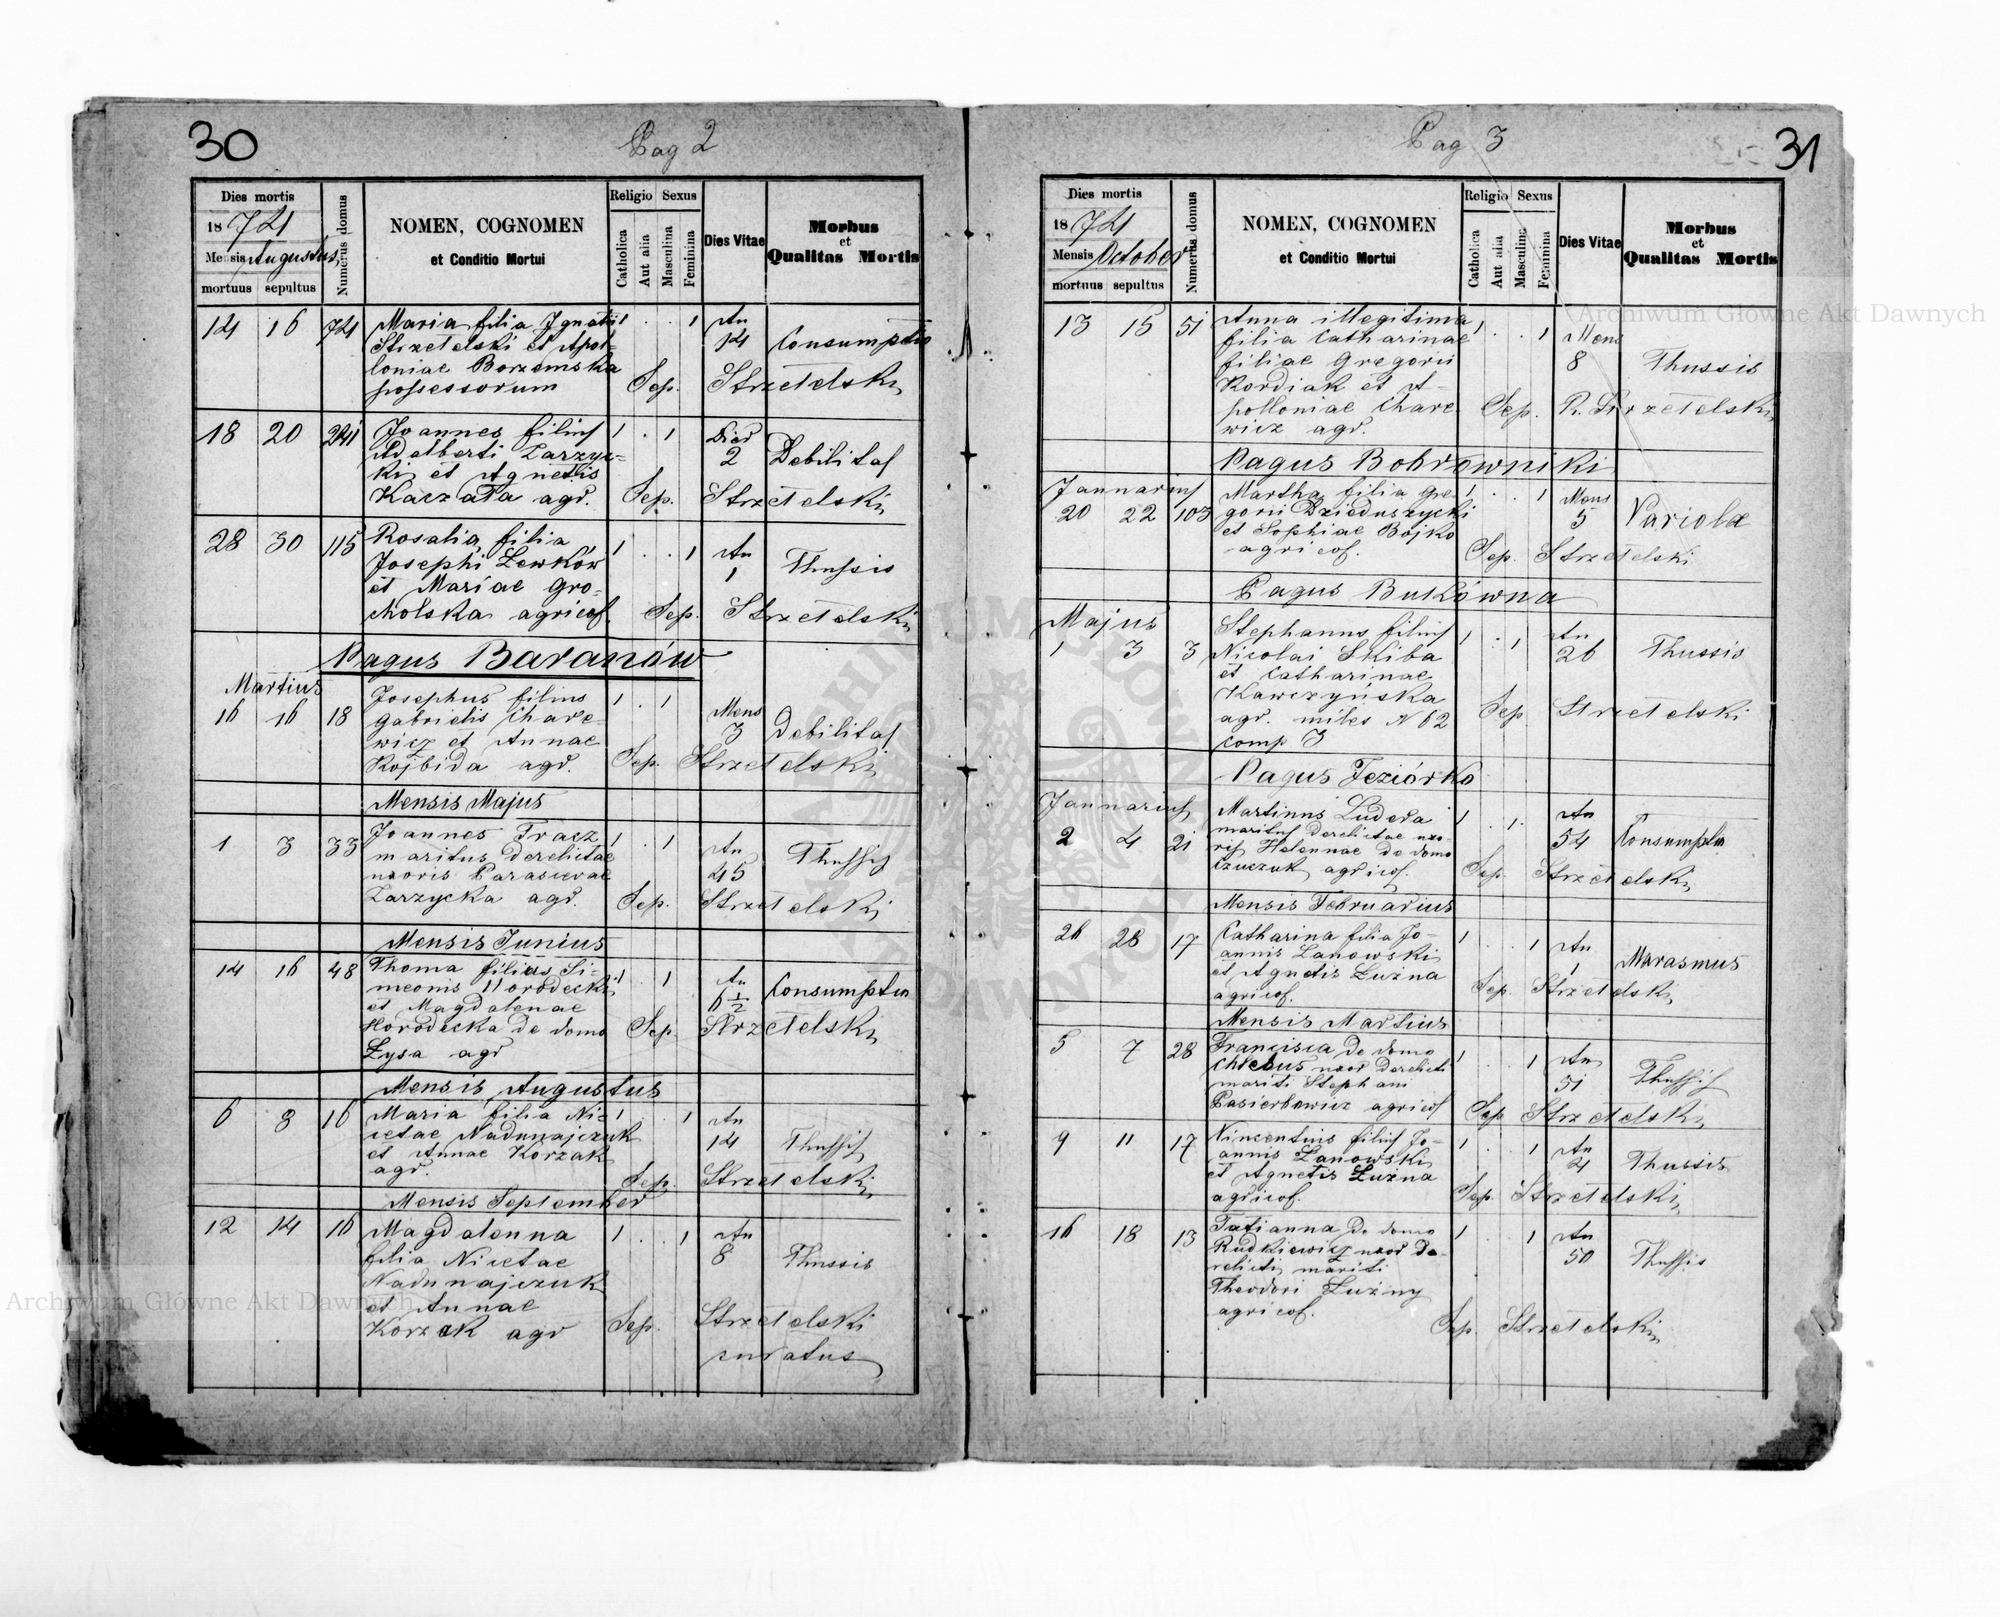 30
Pag 2
Dies mortis
1874
Mensis Augustus
mortuus sepultus
Numerus domus
NOMEN, COGNOMEN
et Conditio Mortui
Religio Sexus
Catholica
Aut alia
Masculina
Feminina
Dies Vitae
Morbus
et
Qualitas Mortis
14 16 74 Maria filia Ignatii 1 . . 1 An
Strzetelski et Apol- 14 Consumptio
loniae Borzemska
possessorum Sep. Strzetelski
18 20 Joannes filius 1 . 1 Dies
Adalberti Zarzyc- 2 Debilitas
ki et Agnetis
Kaczała agr. Sep. Strzetelski
28 30 115 Rosalia filia 1 . . 1 An
Josephi Lewków 1 Thussis
et Mariae Gro-
cholska agricol. Sep. Strzetelski
Pagus Baranów
Martius
16 16 18 Josephus filius 1 . 1 Mens
Gabrielis Chare- 3 Debilitas
wicz et Annae
Kojbida agr. Sep. Strzetelski
Mensis Majus
1 3 33 Joannes Tracz 1 . 1 An
maritus derelictae 45 Thussis
uxoris Parascevae
Zarzycka agr. Sep. Strzetelski
Mensis Junius
14 16 48 Thoma filius Si- 1 . 1 An
meonis Horodecki 6 1/2 Consumptio
et Magdalenae
Horodecka de domo Sep. Strzetelski
Łysa agr
Mensis Augustus
6 8 16 Maria filia Ni- 1 . . 1 An
cetae Nadunajczuk 14 Thussis
et Annae Korzak
agr. Sep. Strzetelski
Mensis September
12 14 16 Magdalenna 1 . . 1 An
filia Nicetae 8 Thussis
Nadunajczuk
et Annae
Korzak agr Sep. Strzetelski
curatus
31
Pag 3
Dies mortis
1874
Mensis October
mortuus sepultus
Numerus domus
NOMEN, COGNOMEN
et Conditio Mortui
Religio Sexus
Catholica
Aut alia
Masculina
Feminina
Dies Vitae
Morbus
et
Qualitas Mortis
13 15 51 Anna illegitima 1 . . 1 Mens
filia Catharinae 8 Thussis
filiae Gregorii
Kordiak et A-
polloniae Chare Sep. R. Strzetelski
wicz agr.
Pagus Bobrowniki
Januarius
20 22 103 Martha filia Gre- 1 . . 1 Mens
gorii Dzieduszycki 5 Variola
et Sophiae Bojko
agricol. Sep. Strzetelski
Pagus Bukówna
Majus
1 3 3 Stephanus filius 1 . 1 An
Nicolai Skiba 26 Thussis
et Catharinae
Kawczyńska
agr. miles N 62 Sep Strzetelski
comp 3
Pagus Jeziórko
Januarius
2 4 21 Martinus Ludera 1 . 1 . An
maritus derelictae uxo- 54 Consumptio
ris Helennae de domo
Czuczuk agricol. Sep. Strzetelski
Mensis Februarius
26 28 17 Catharina filia Jo- 1 . . 1 An
annis Łanowski 1 Marasmus
et Agnetis Łużna
agricol. Sep. Strzetelski
Mensis Martius
5 7 28 Francisca de domo 1 . . 1 An
Chlebus uxor derelicti 51 Thussis
mariti Stephani
Pasierbowicz agricol Sep Strzetelski
9 11 17 Vincentius filius Jo- 1 . . 1 An
annis Łanowski 4 Thussis
et Agnetis Łużna
agricol. Sep. Strzetelski
16 18 13 Tatianna de domo 1 . . 1 An
Rudkiewicz uxor de- 50 Thussis
relicti mariti
Theodori Łużny
agricol. Sep. Strzetelski
Archiwum Główne Akt Dawnych
Archiwum Główne Akt Dawnych